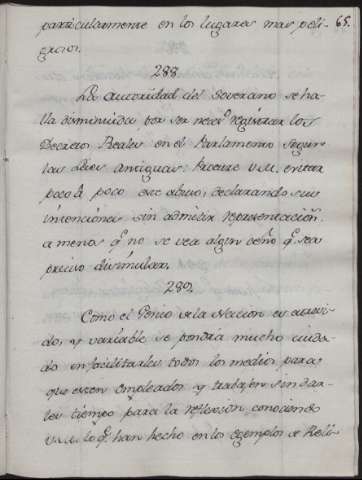 particularmente en los lugares mas peli-
grosos.
65.
288.
La autoridad del Soverano se ha-
lla disminuida por ser neces.º registrar los
Decretos Reales en el Parlamento segun
las Leyes antiguas: Procure V.M. evitar
poco à poco este abuso, declarando sus
intenciones sin admitir representacion.
a menos q.e no se vea algun daño q.e sea
preciso disimular.
289.
Como el Genio de la Nacion es atrevi-
do, y variable se pondrà mucho cuida-
do en facilitarles todos los medios para
que esten empleados y trabajen sin dar-
les tiempo para la reflexion, conociendo
V.M. lo q.e han hecho en los exemplos de Reli-